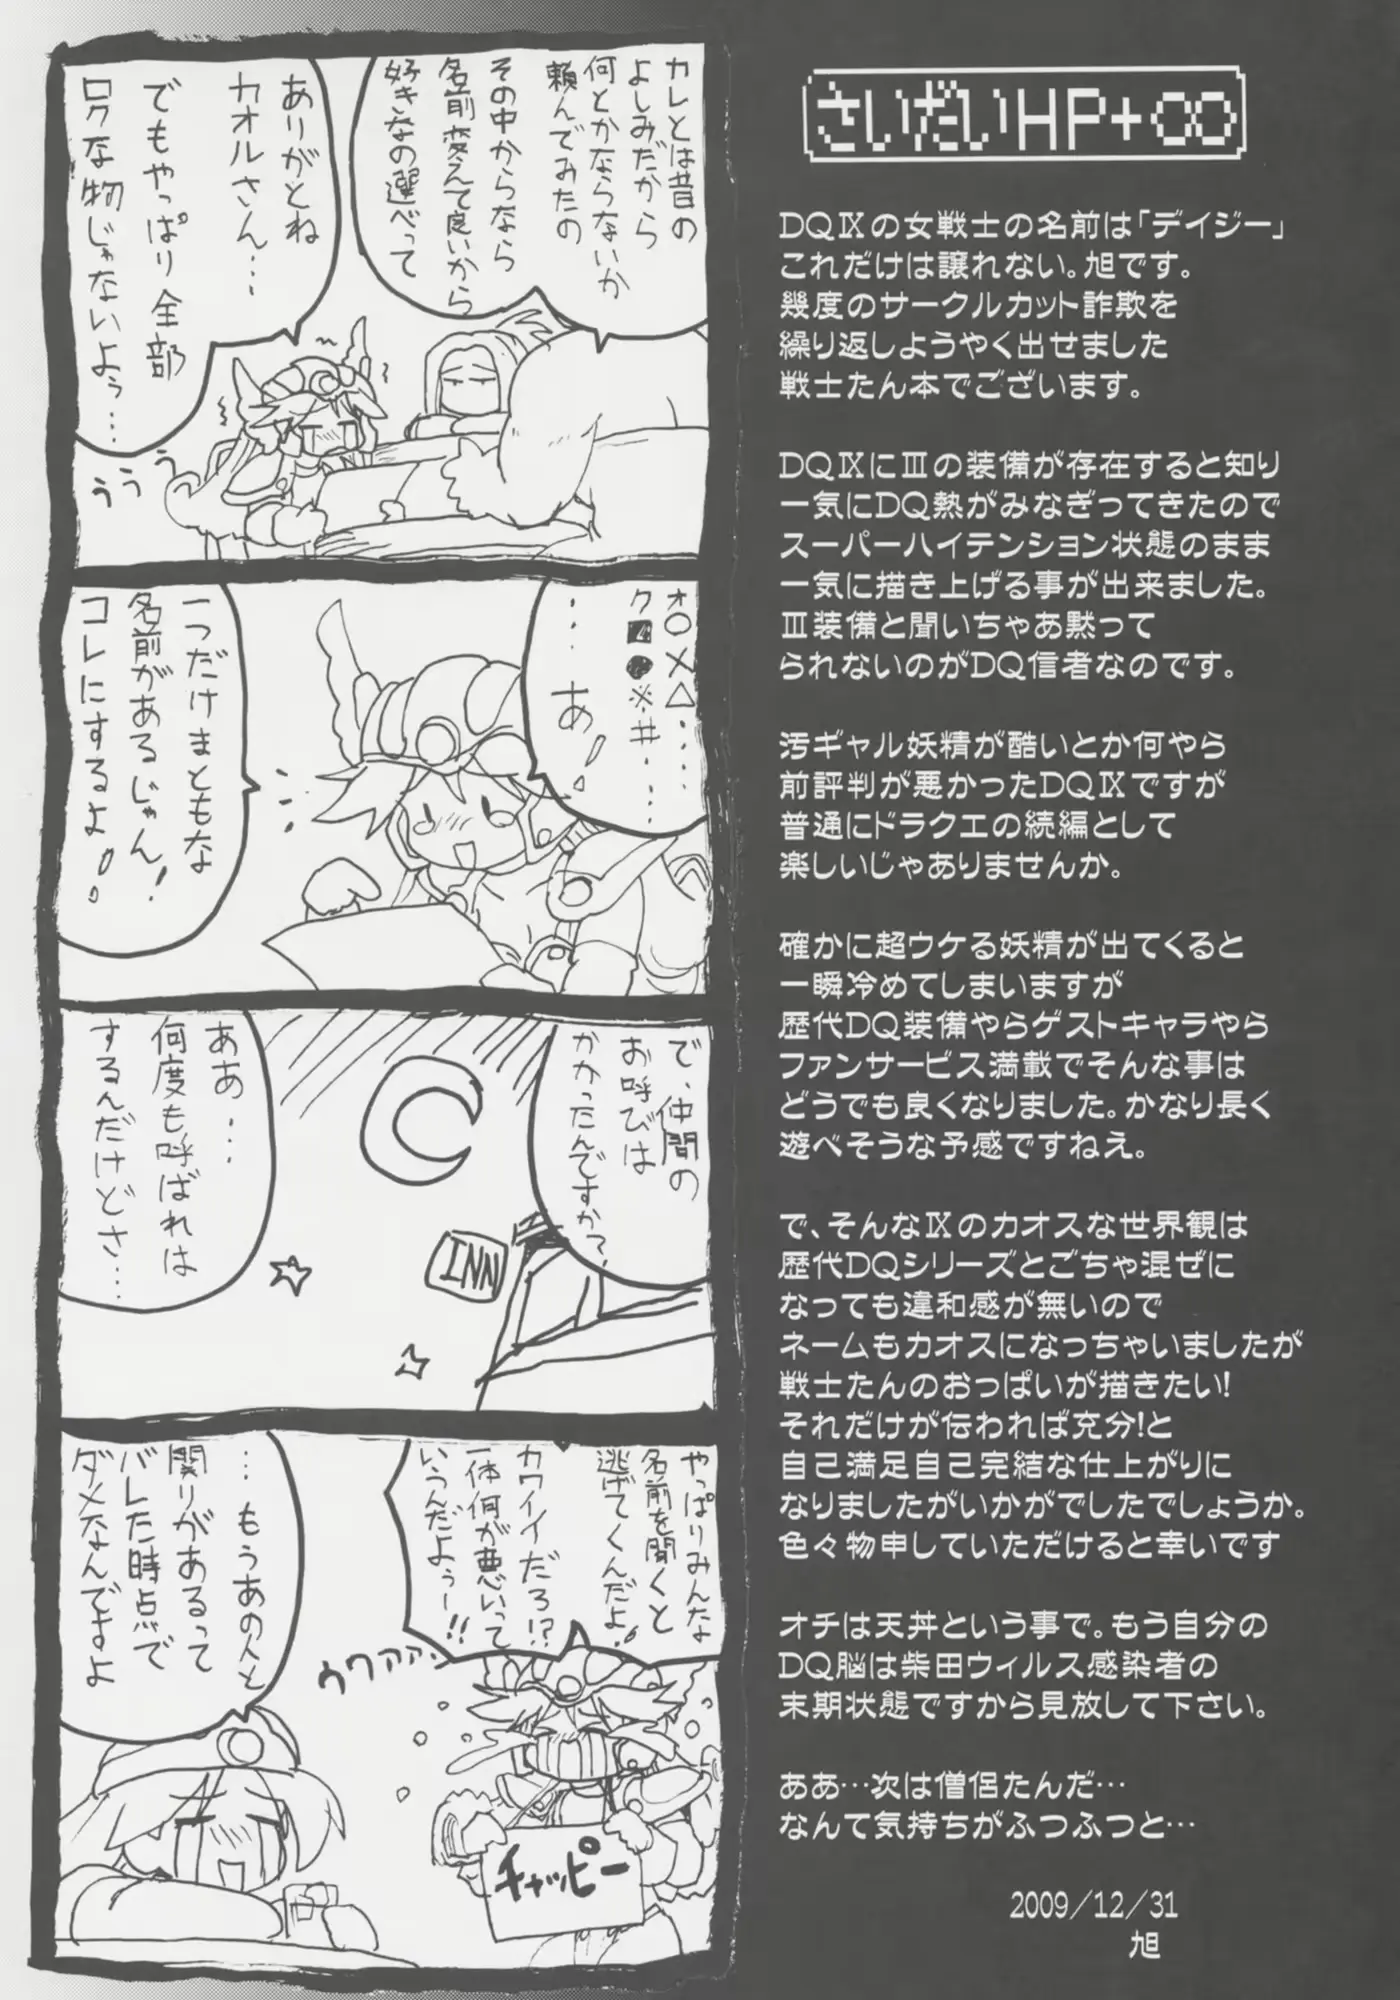 さいだいHP+∞
DQⅨの女戦士の名前は「デイジー」
これだけは譲れない。旭です。
幾度のサークルカット詐欺を
繰り返しようやく出せました
戦士たん本でございます。
DQⅨにⅢの装備が存在すると知り
一気にDQ熱がみなぎってきたので
スーパーハイテンション状態のまま
一気に描き上げる事が出来ました。
Ⅲ装備と聞いちゃあ黙って
られないのがDQ信者なのです。
汚ギャル妖精が酷いとか何やら
前評判が悪かったDQⅨですが
普通にドラクエの続編として
楽しいじゃありませんか。
確かに超ウケる妖精が出てくると
一瞬冷めてしまいますが
歴代DQ装備やらゲストキャラやら
ファンサービス満載でそんな事は
どうでも良くなりました。かなり長く
遊べそうな予感ですねえ。
で、そんなⅨのカオスな世界観は
歴代DQシリーズとごちゃ混ぜに
なっても違和感が無いので
ネームもカオスになっちゃいましたが
戦士たんのおっぱいが描きたい!
それだけが伝われば充分!と
自己満足自己完結な仕上がりに
なりましたがいかがでしたでしょうか。
色々物申していただけると幸いです
オチは天丼という事で。もう自分の
DQ脳は柴田ウィルス感染者の
末期状態ですから見放して下さい。
ああ…次は僧侶たんだ…
なんて気持ちがふつふつと…
2009/12/31
旭
カレとは昔の
よしみだから
何とかならないか
頼んでみたの
その中からなら
名前変えて良いから
好きなの選べって
ありがとね
カオルさん…
でもやっぱり全部
ロクな物じゃないよぅ…
ううう
オ○×△……
ク■●※#…
…あ!
一つだけまともな
名前があるじゃん!
コレにするよ!
で、仲間の
お呼びは
かかったんですか?
ああ…
何度も呼ばれは
するんだけどさ…
INN
やっぱりみんな
名前を聞くと
逃げてくんだよ!
カワイイだろ!?
一体何が悪いって
いうんだよぅー!!
ウワァァァ
…もうあの人と
関りがあるって
バレた時点で
ダメなんですよ
チャッピー